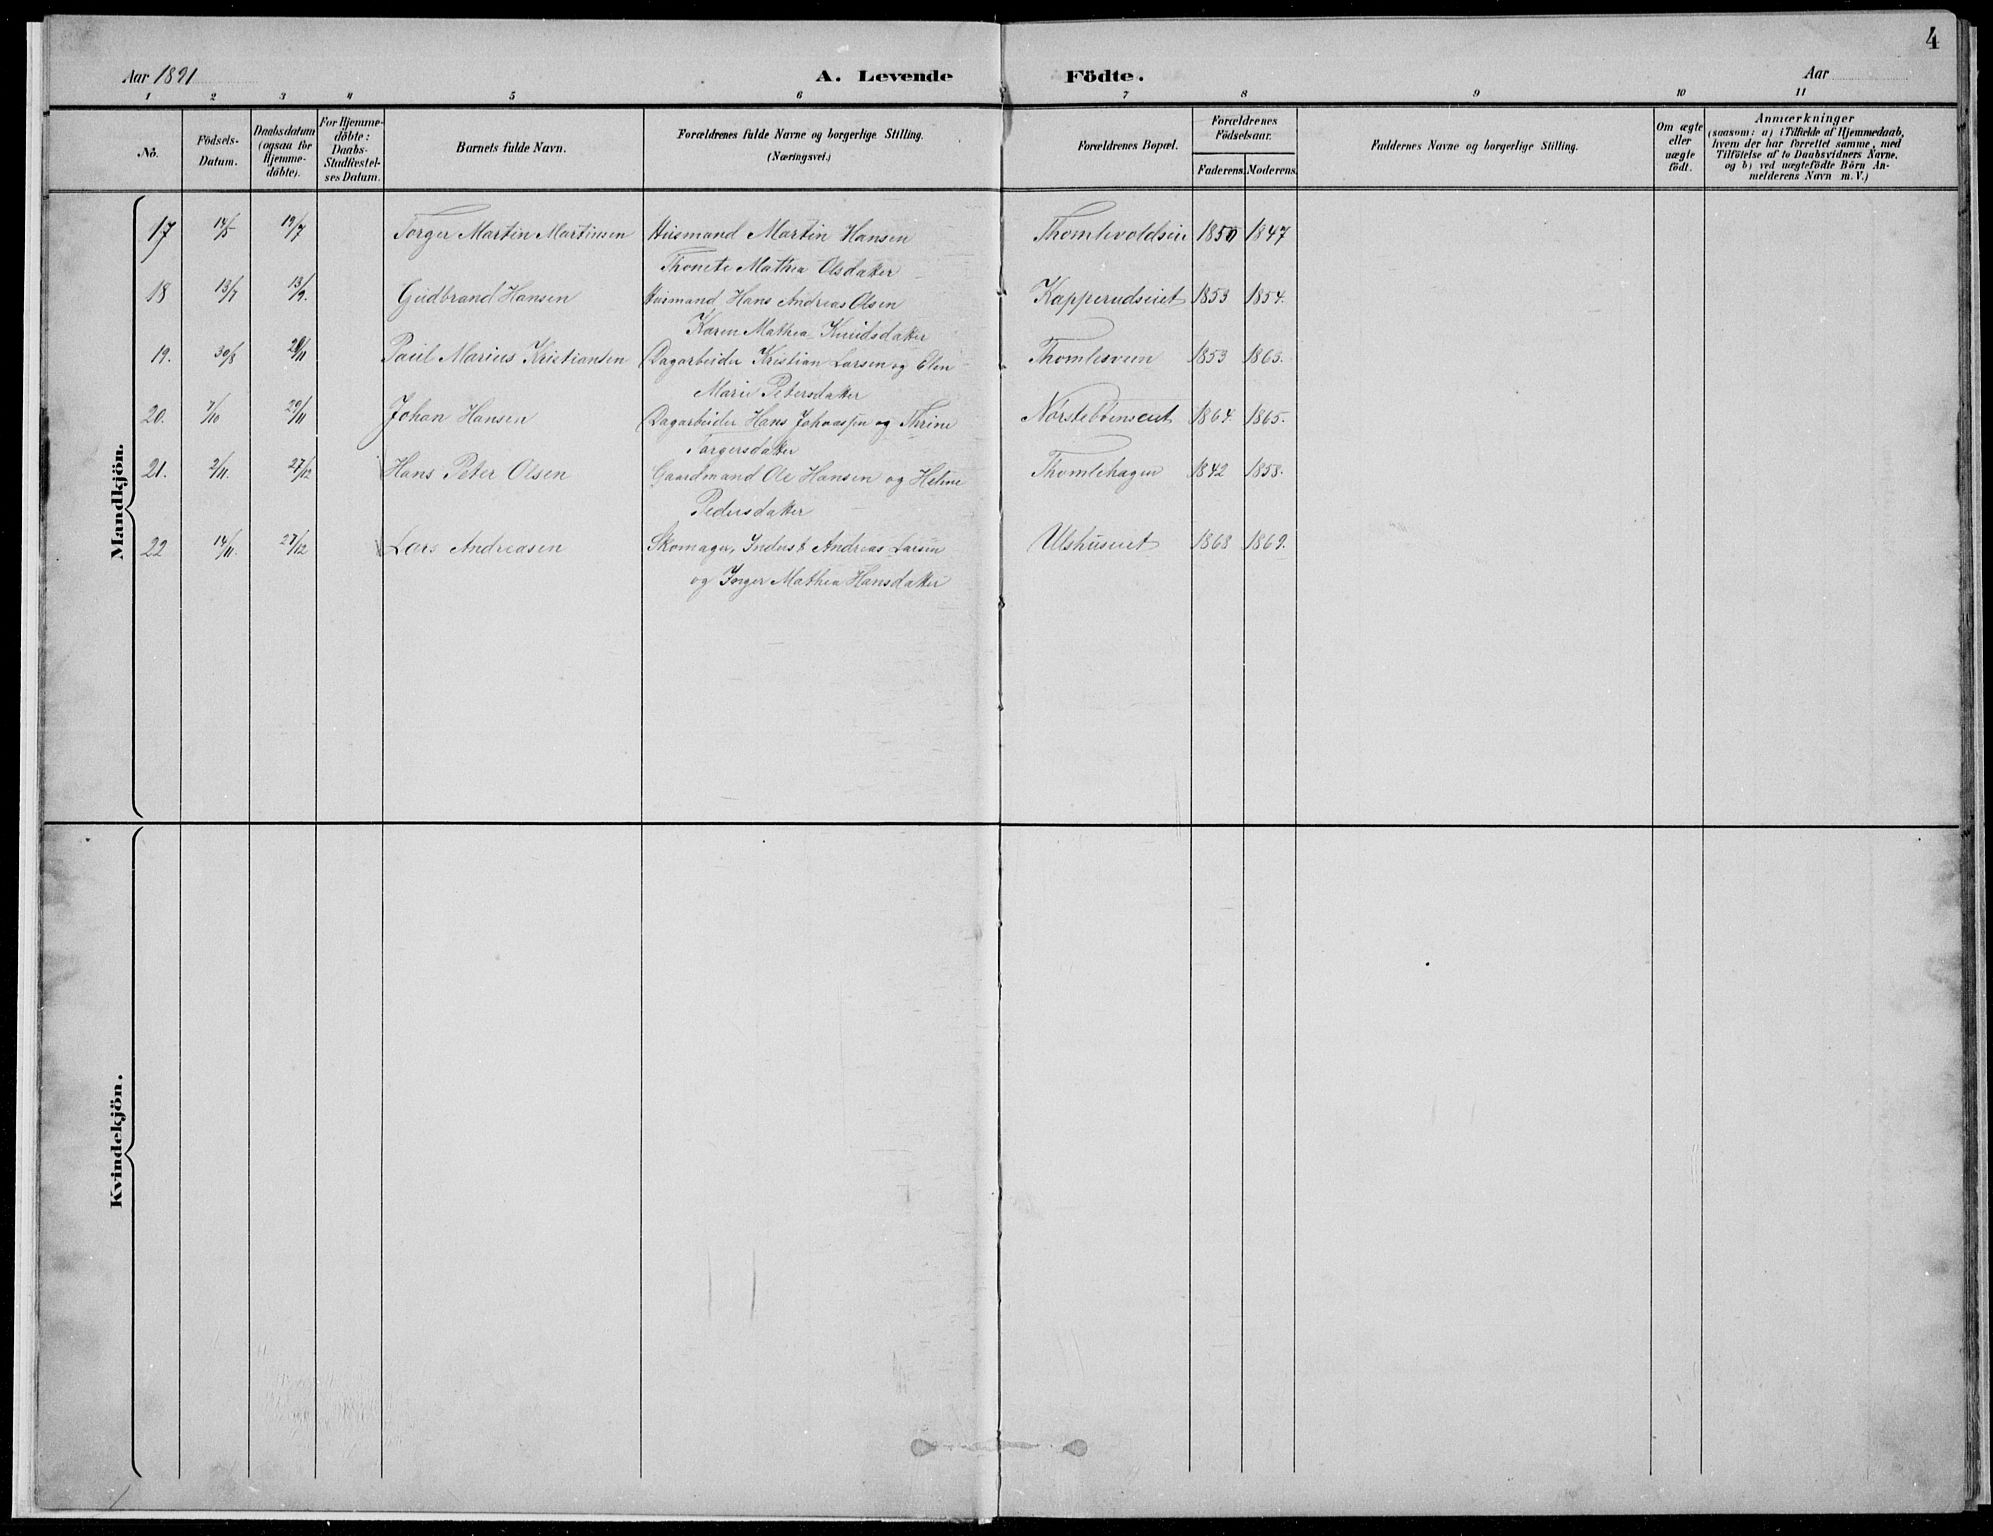 4
Aar 1891
A. Levende Födte.
Aar
1 2 3 4 5 6 7 8 9 10 11
No.
Födsels-Datum.
Daabsdatum (ogsaa for Hjemme-döbte).
For Hjemme-döbte: Daabs-Stadfæstel-ses Datum.
Barnets fulde Navn.
Forældrenes fulde Navne og borgerlige Stilling.
(Næringsvei.)
Forældrenes Bopæl.
Forældrenes Födselsaar.
Faderens. Moderens.
Faddernes Navne og borgerlige Stilling.
Om ægte eller uægte födt.
Anmærkninger
(saasom: a) i Tilfælde af Hjemmedaab,
hvem der har forrettet samme, med
Tilföielse af to Daabsvidners Navne,
og b) ved uægtefödte Börn An-
melderens Navn m. V.)
Mandkjön.
17 14/5 19/7 Torger Martin Martinsen Husmand Martin Hansen Thomlevoldsein 1850 1847
Thonete Mathea Olsdatter
18 13/7 13/9. Gudbrand Hansen Husmand Hans Andreas Olsen Kapperudseiet 1853 1854.
Karen Mathea Knudsdatter
19. 30/8 /11 Paul Marius Kristiansen Dagarbeider Kristian Larsen og Elen Thomlesveen 1853 1863.
Marie Petersdatter
20. 7/10 29/11 Johan Hansen Dagarbeider Hans Johanssen og Thrine 1864 1865.
Torgersdatter
21. 2/11. 27/12 Hans Peter Olsen Gaardmand Ole Hansen og Helene Thomlehagen 1842 1858.
Pedersdatter
22 14/11. 27/12 Lars Andreasen Skomager, Inderst Andreas Larsen Ulshuseiet 1868 1869.
og Inger Mathea Hansdatter
Kvindekjön.